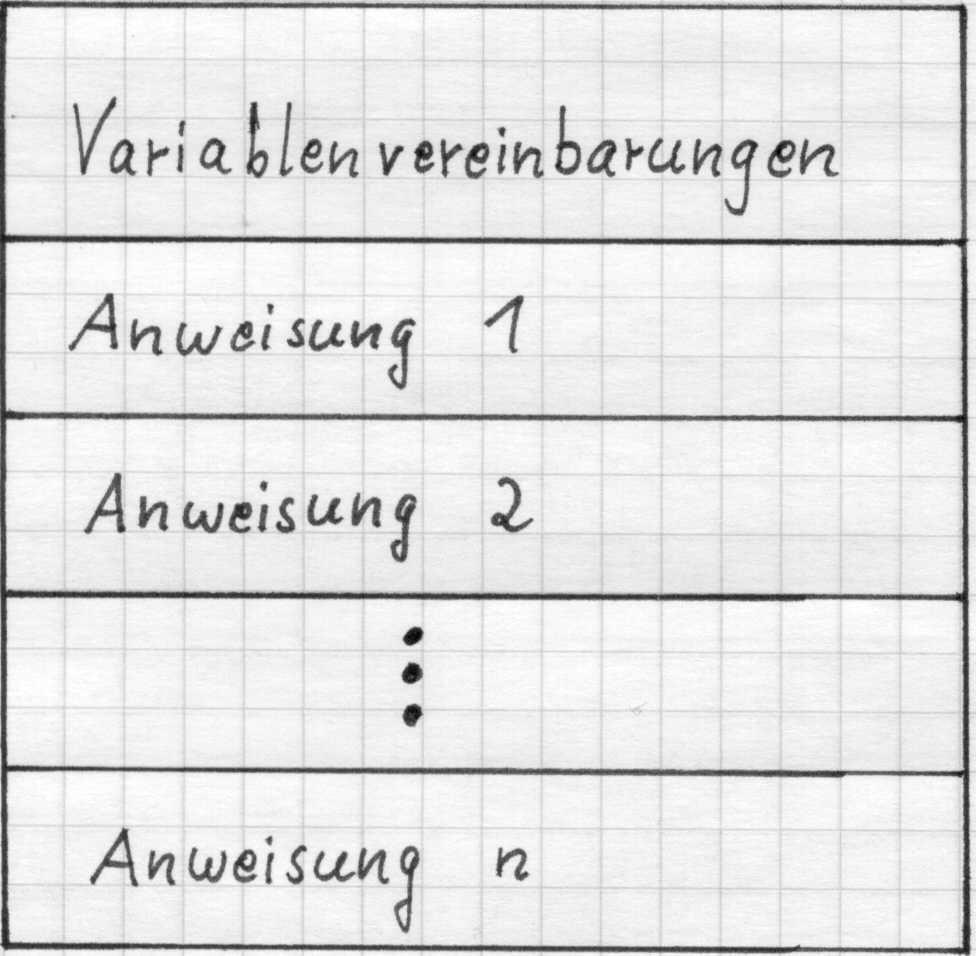 Variablenvereinbarungen
Anweisung 1
Anweisung 2
⋮
Anweisung n